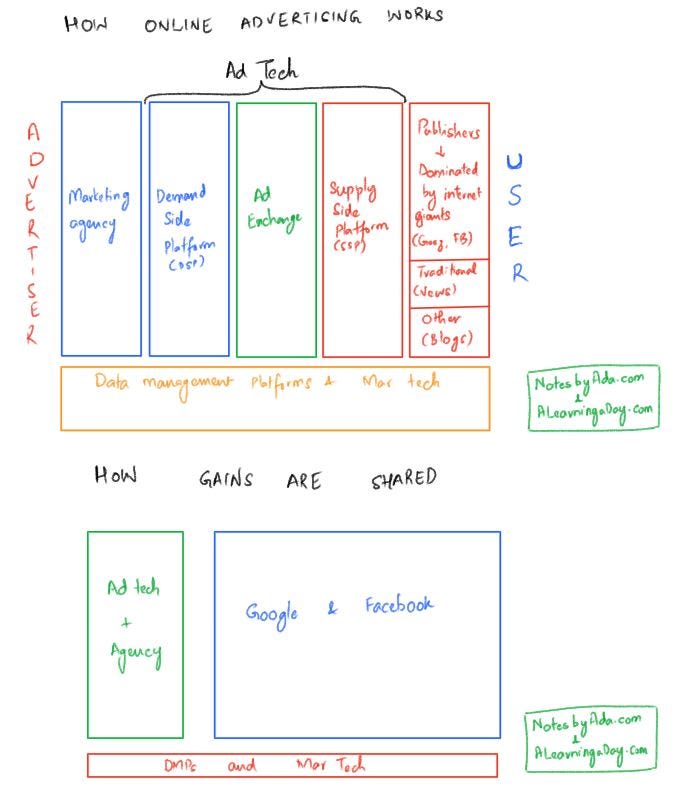 HOW ONLINE ADVERTICING WORKS
Ad Tech
ADVERTISER
Marketing
agency
Demand
Side
Platform
(DSP)
Ad
Exchange
Supply
Side
Platform
(SSP)
Publishers
↓
Dominated
by internet
giants
(Goog, FB)
Traditional
(News)
Other
(Blogs)
USER
Data management Platforms & Mar tech
Notes by Ada.com
&
ALearningaDay.com
HOW GAINS ARE SHARED
Ad tech
+
Agency
Google & Facebook
DMPs and Mar Tech
Notes by Ada.com
&
ALearningaDay.com